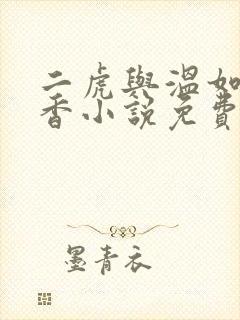 二虎與溫如
香小說免費
墨青衣